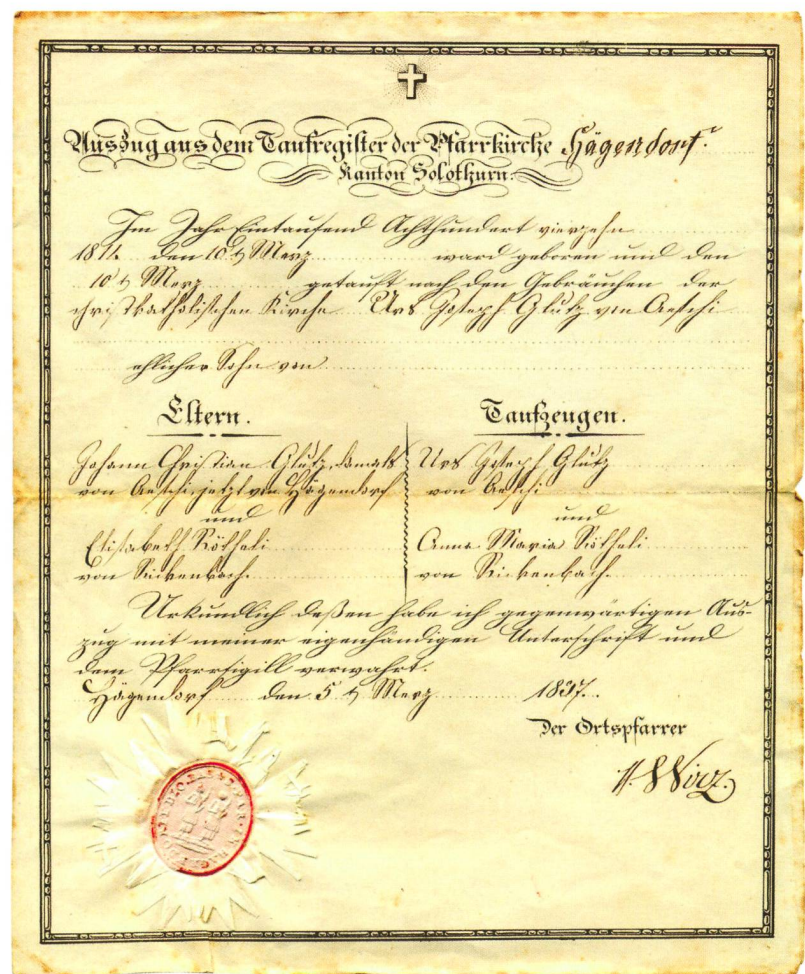 Auszug aus dem Taufregister der Pfarrkirche Hägendorf.
Kanton Solothurn.
Im Jahr Eintausend Achthundert vierzehn
1814. den 10t Merz ward geboren und den
10t Merz getauft nach den Gebräuchen der
christkatholischen Kirche Urs Joseph Glutz von Aeschi
ehlicher Sohn von
Eltern.
Johann Christian Glutz, damals
von Aeschi, jetzt von Hägendorf
und
Elisabeth Rötheli
von Rickenbach.
Taufzeugen.
Urs Joseph Glutz
von Aeschi
und
Anna Maria Rötheli
von Rickenbach.
Urkundlich deßen habe ich gegenwärtigen Aus-
zug mit meiner eigenhändigen Unterschrift und
dem Pfarrsigill verwahrt.
Hägendorf den 5t Merz 1837.
Der Ortspfarrer
Wirz